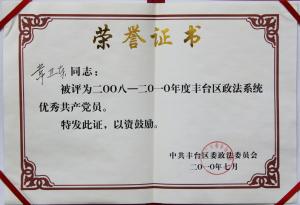 荣誉证书
章卫东同志：
被评为二〇〇八—二〇一〇年度丰台区政法系统
优秀共产党员。
特发此证，以资鼓励。
中共丰台区委政法委员会
二〇一〇年七月